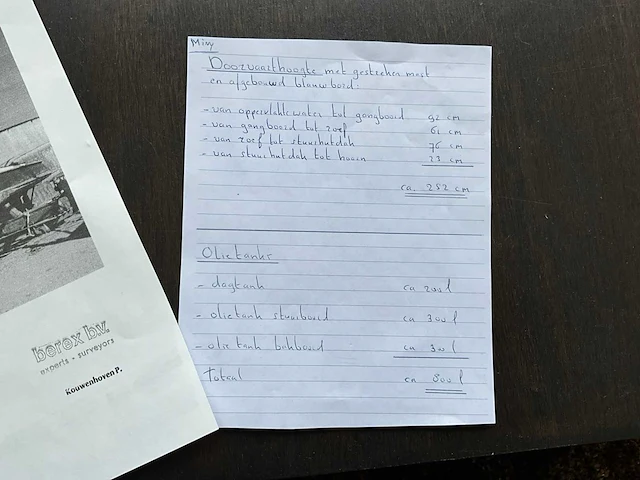 Miny
Doorvaarthoogte met gestreken mast
en afgebouwd blauwbord:
- van oppervlaktewater tot gangboord 92 cm
- van gangboord tot roef 61 cm
- van roef tot stuurhutdak 76 cm
- van stuurhutdak tot hoorn 23 cm
ca. 252 cm
Olietanks
- dagtank ca 200 l
- olietank stuurboord ca 300 l
- olietank bakboord ca 300 l
Totaal ca 800 l
borox b.v.
experts - surveyors
Kouwenhoven P.